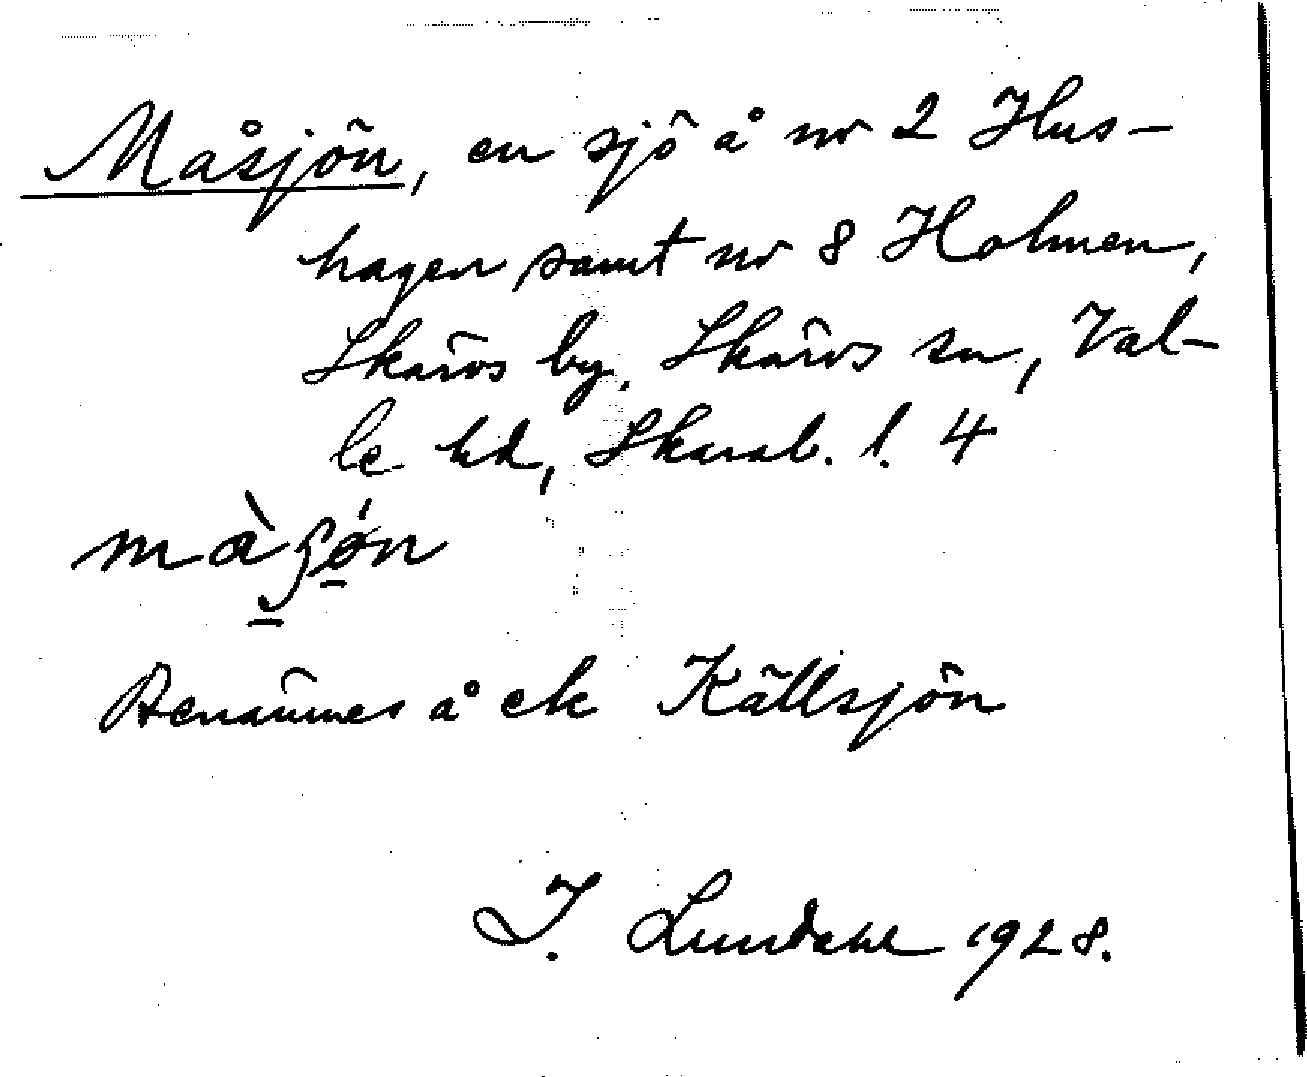 Måsjön, en sjö å nr 2 Hus-
hagen samt nr 8 Holmen,
Skärvs by, Skärvs sn, Val-
le hd, Skarab. l. 4
Benämnes å ek Källsjön
I. Lundahl 1928.